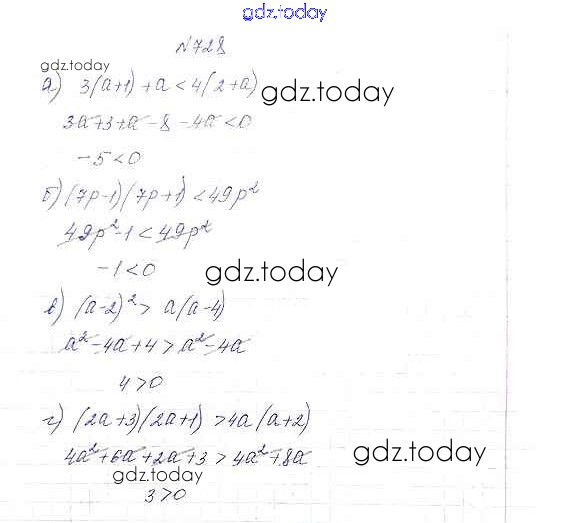 gdz.today
№728
gdz.today
а) 3(a+1)+a<4(2+a)
gdz.today
3a+3+a-8-4a<0
-5<0
б) (7p-1)(7p+1)<49p²
49p²-1<49p²
-1<0
gdz.today
в) (a-2)²> a(a-4)
a²-4a+4>a²-4a
4>0
г) (2a+3)(2a+1)>4a(a+2)
4a²+6a+2a+3>4a²+8a
gdz.today
gdz.today
3>0